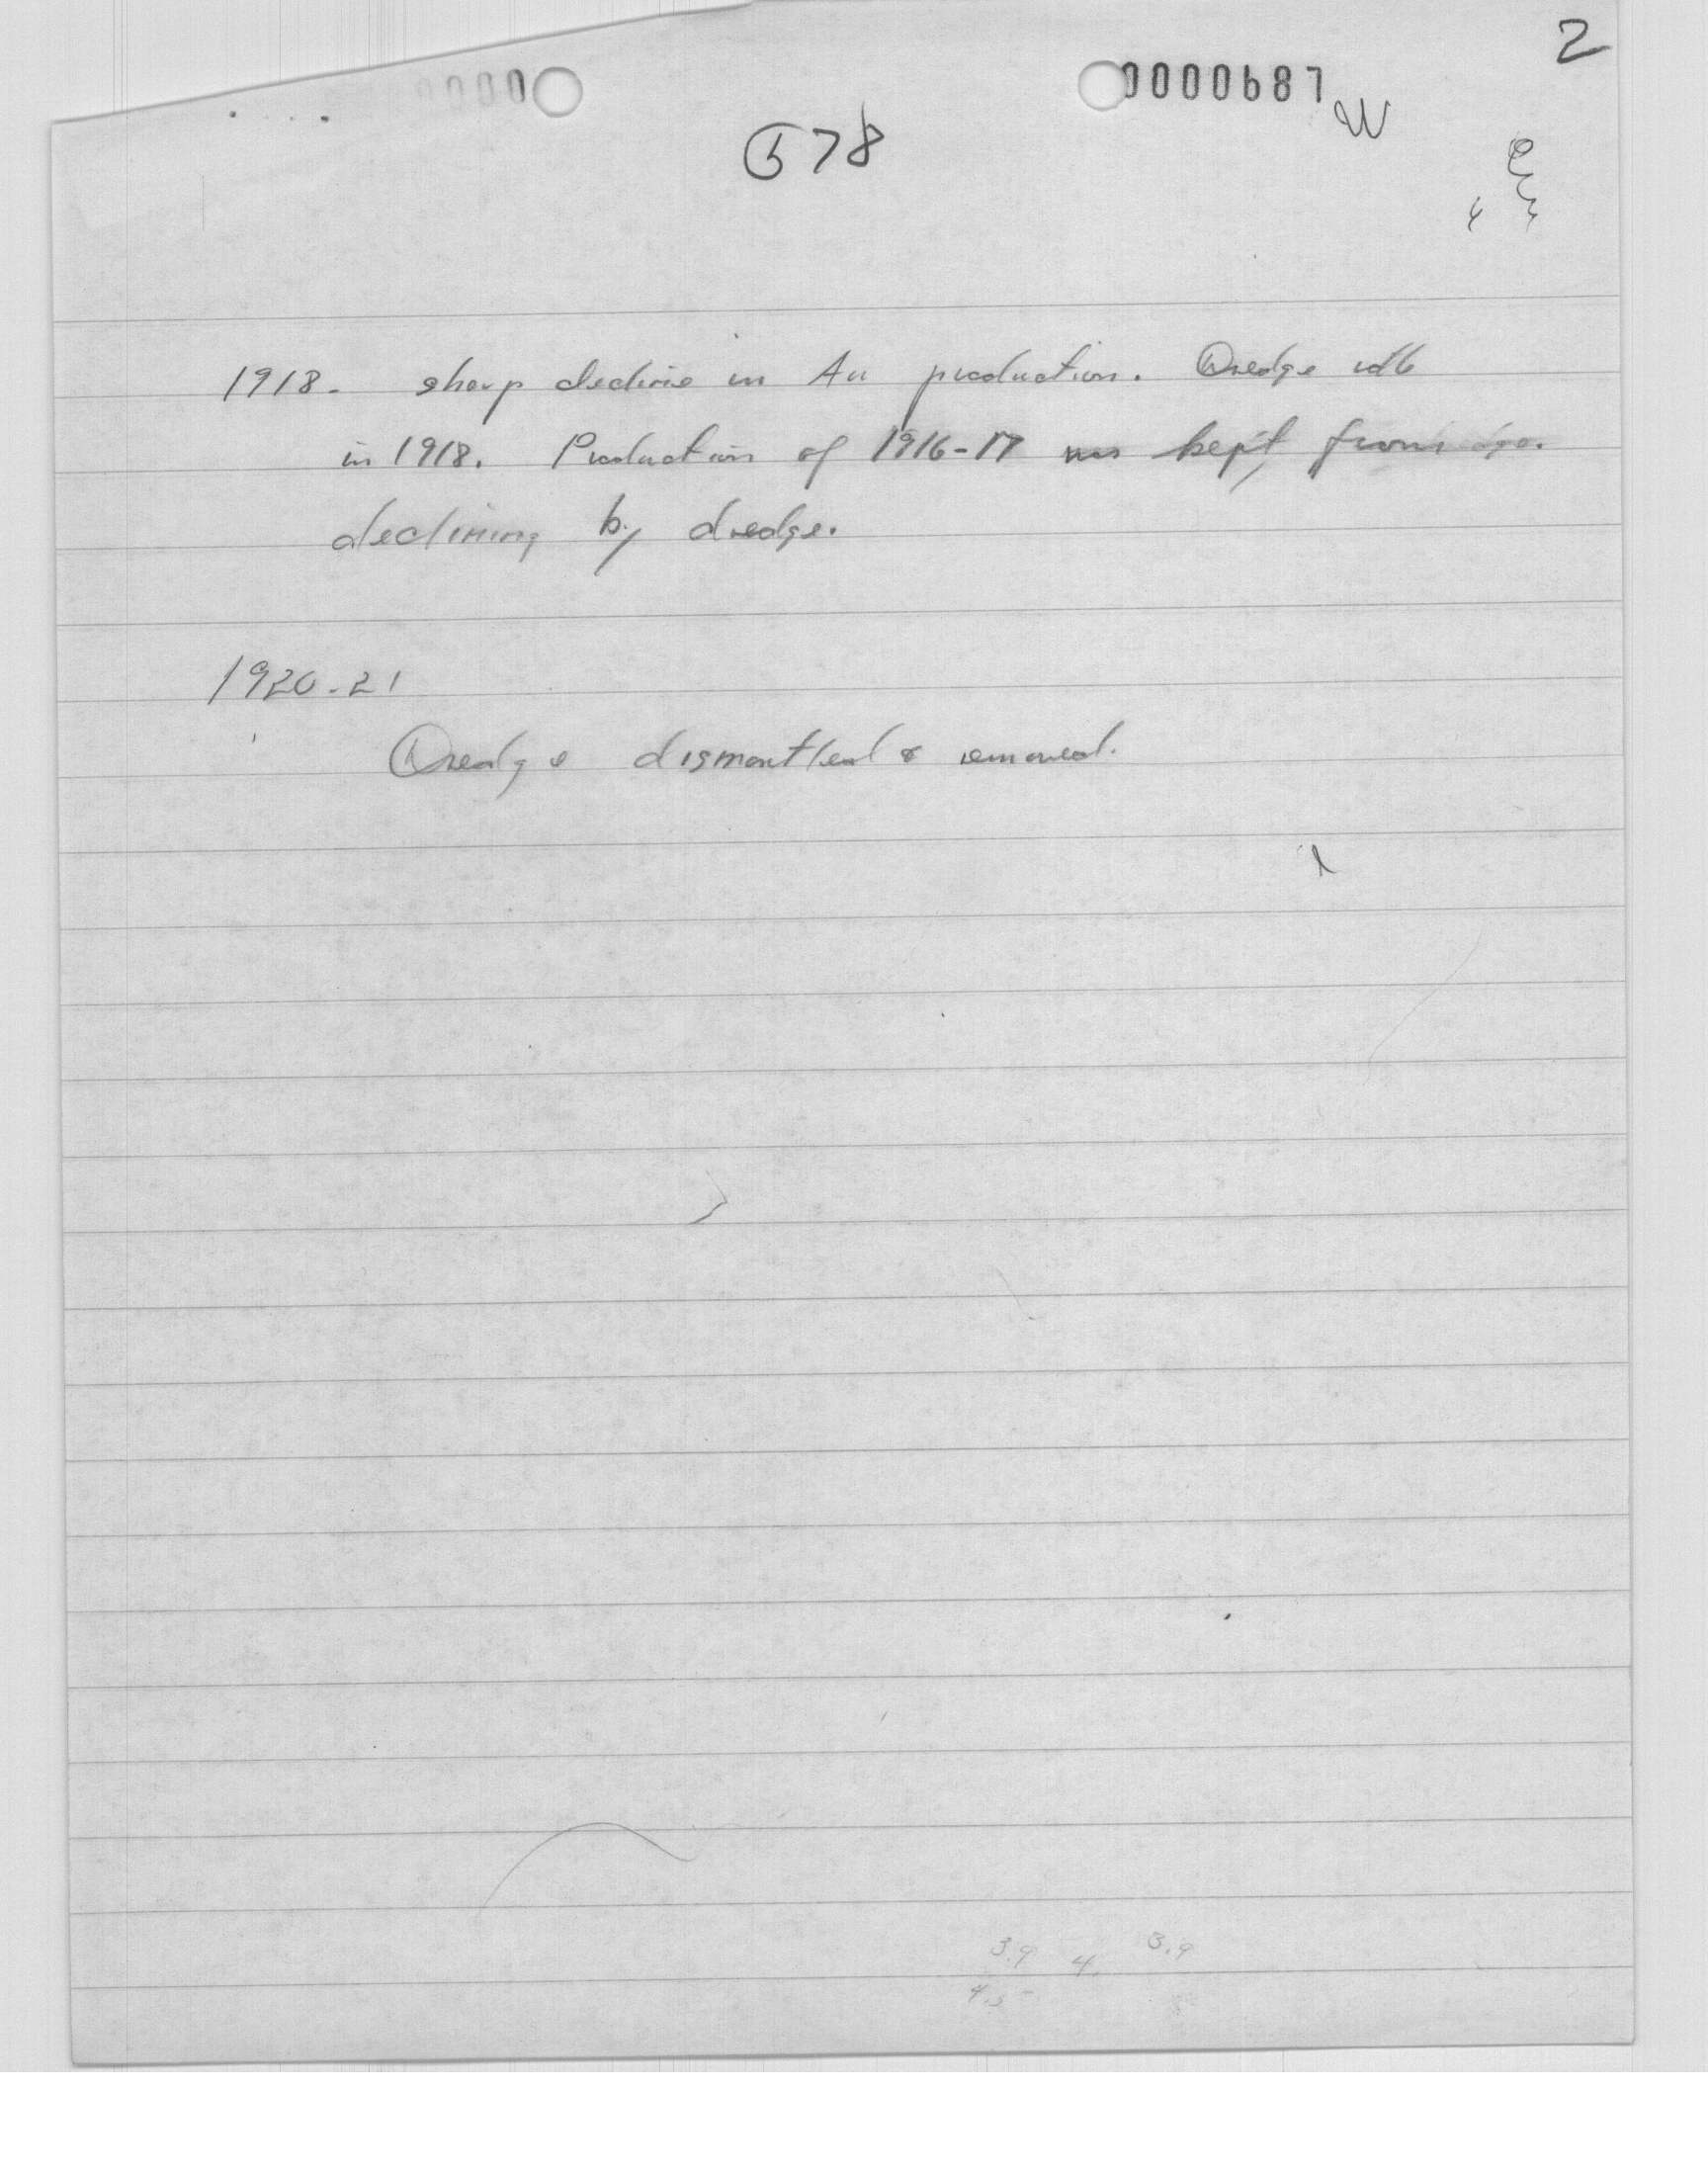 2
0000687
578
1918. sharp decline in Au production. Dredge idle
in 1918. Production of 1916-17 was kept from
declining by dredge.
1920-21
Dredge dismantled & removed.
3.9 4. 3.9